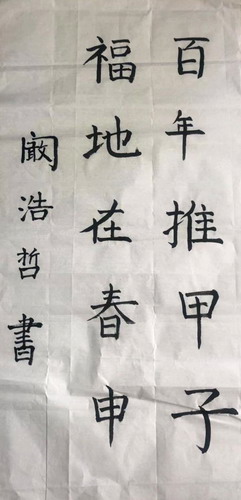 百年推甲子
福地在春申
阚浩哲書